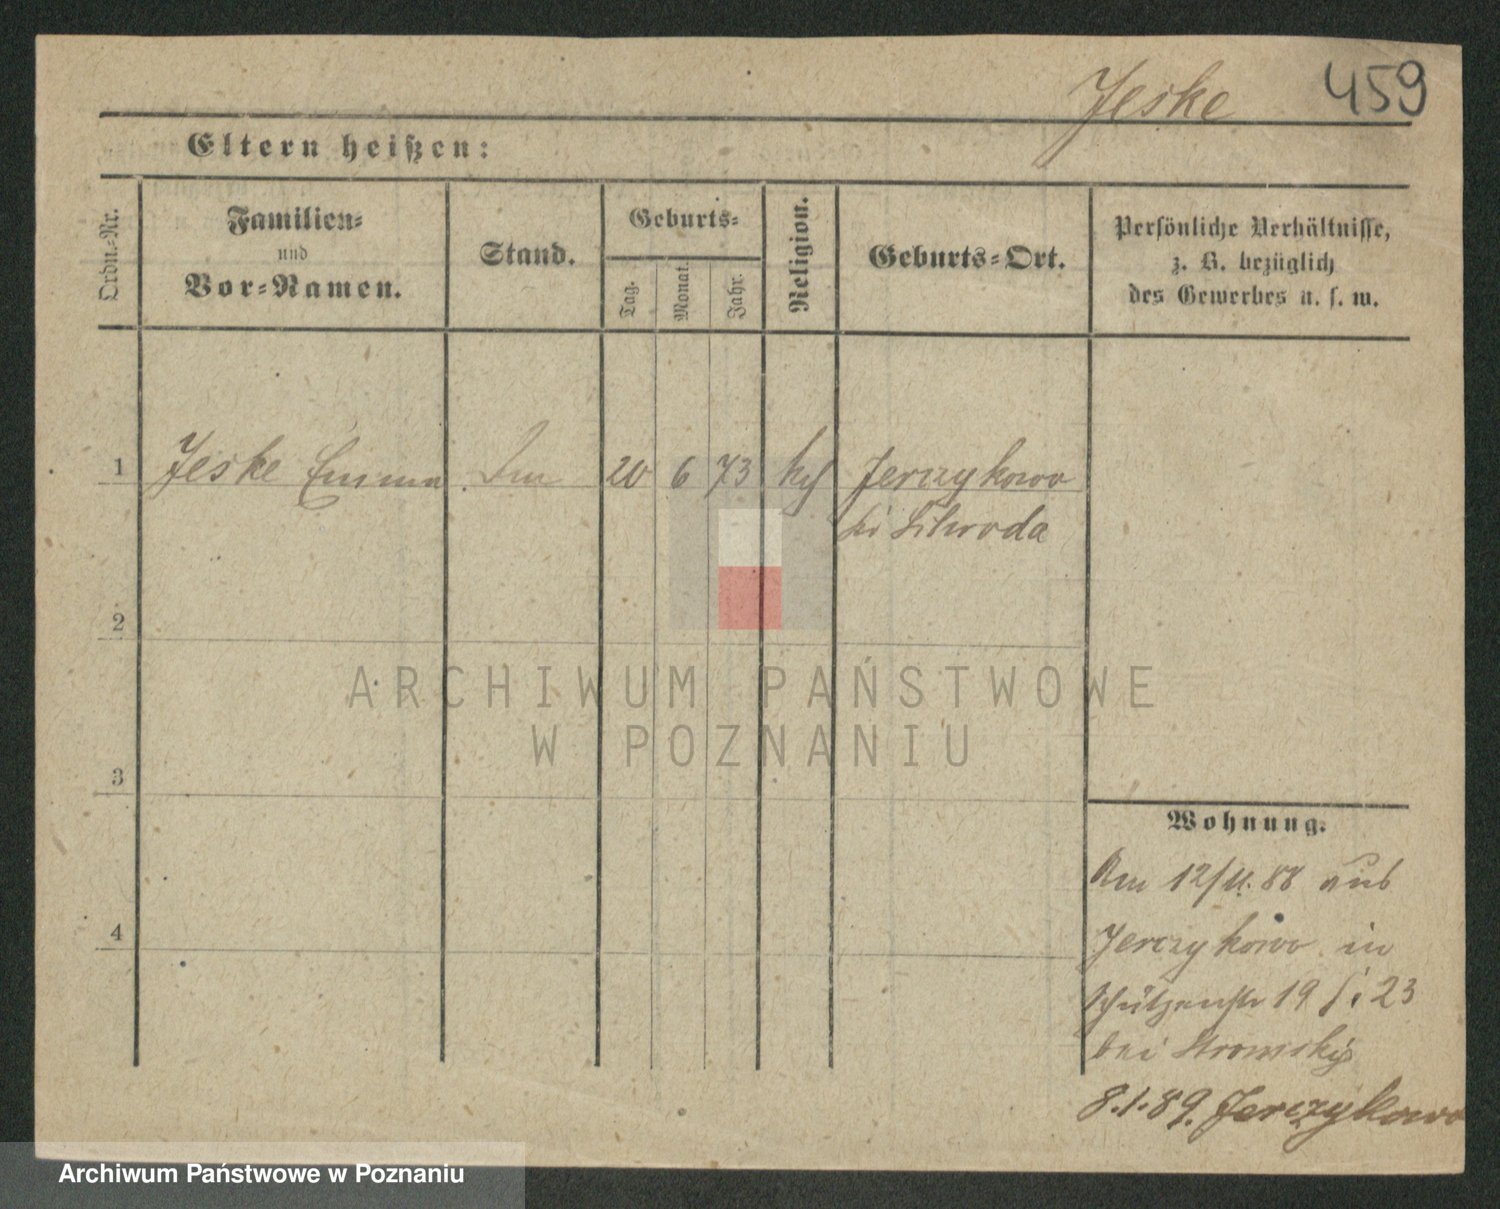 Jeske 459
Eltern heißen:
Ordn.-Nr.
Familien-
und
Vor-Namen.
Stand.
Geburts-
Tag.
Monat.
Jahr.
Religion.
Geburts-Ort.
Persönliche Verhältnisse,
z. B. bezüglich
des Gewerbes u. s. w.
1 Jeske Emma 20 6 73 Jerzykowo
Schroda
2
ARCHIWUM PAŃSTWOWE
W POZNANIU
3
Wohnung.
Am 12/11.88 aus
4
Jerzykowo in
Schützenstr 19 23
bei
8.1.89. Jerzykowo
Archiwum Państwowe w Poznaniu